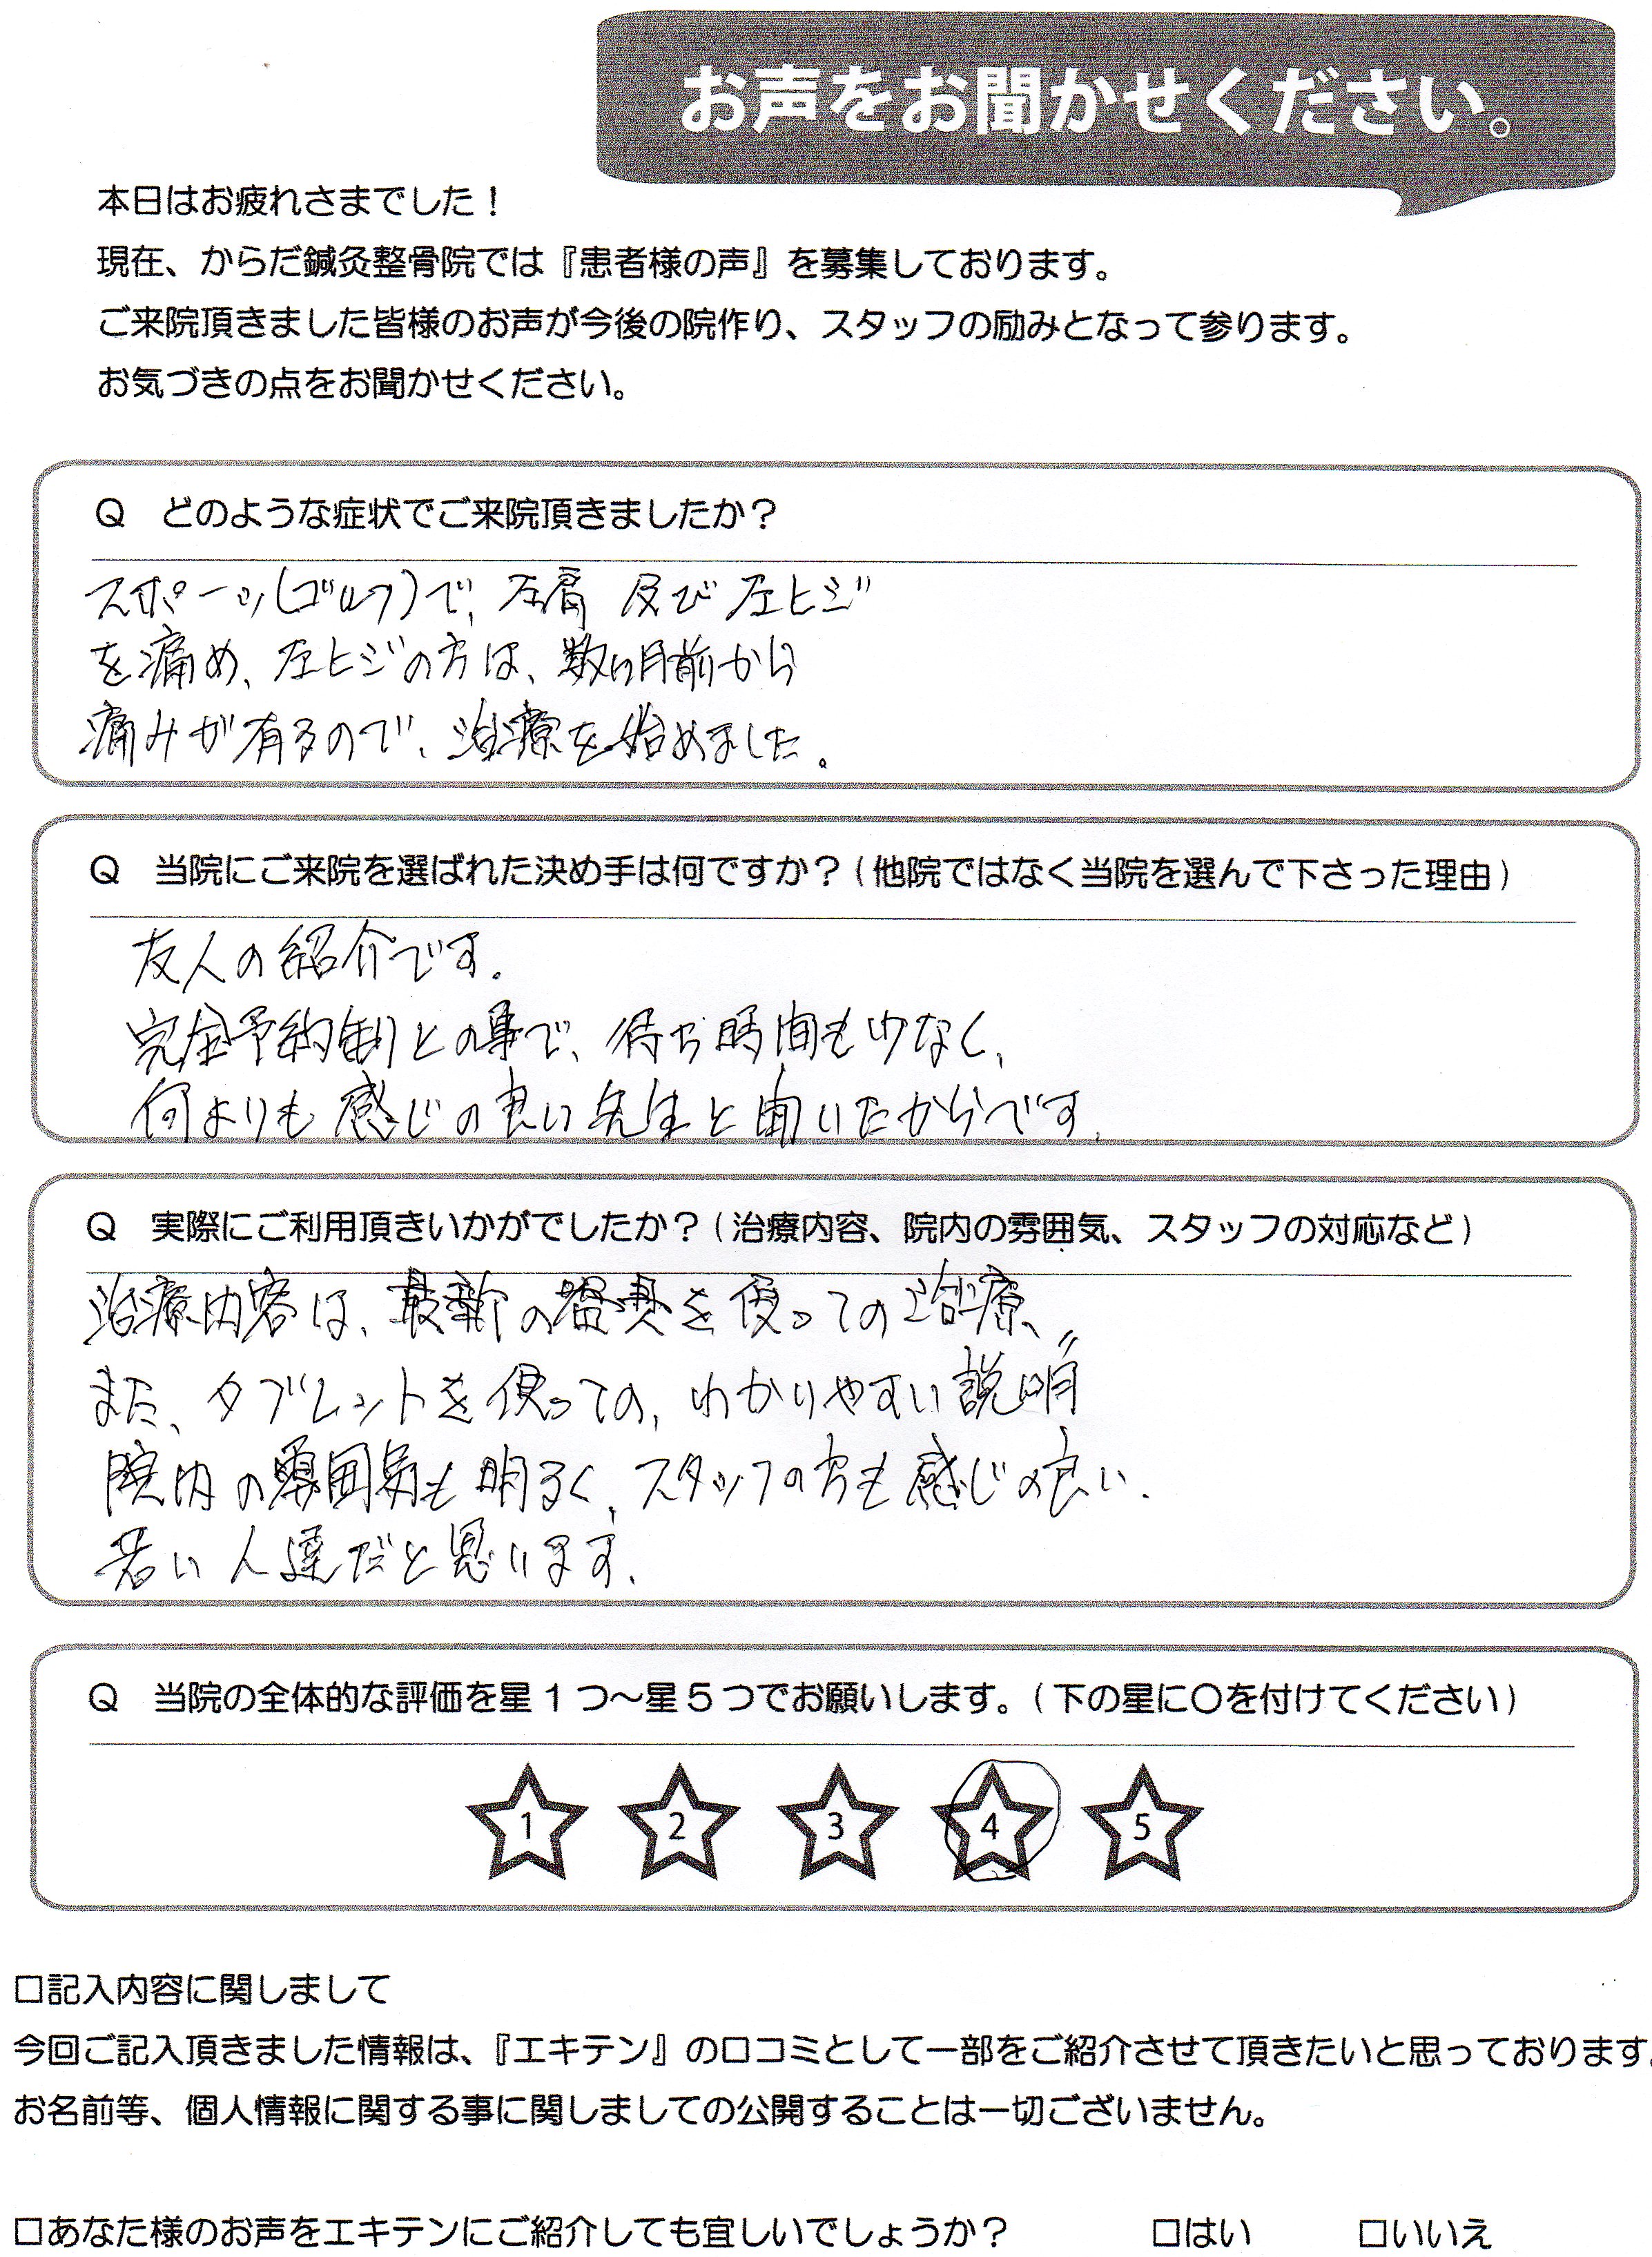 お声をお聞かせください。
本日はお疲れさまでした！
現在、からだ鍼灸整骨院では『患者様の声』を募集しております。
ご来院頂きました皆様のお声が今後の院作り、スタッフの励みとなって参ります。
お気づきの点をお聞かせください。
Q どのような症状でご来院頂きましたか？
スポーツ(ゴルフ)で、左肩 及び 左ヒジ
を痛め、左ヒジの方は、数ヶ月前から
痛みが有るので、治療を始めました。
Q 当院にご来院を選ばれた決め手は何ですか？（他院ではなく当院を選んで下さった理由）
友人の紹介です。
完全予約制との事で、待ち時間も少なく、
何よりも感じの良い先生と聞いたからです。
Q 実際にご利用頂きいかがでしたか？（治療内容、院内の雰囲気、スタッフの対応など）
治療内容は、最新の器具を使っての治療、
また、タブレットを使っての、わかりやすい説明〃
院内の雰囲気も明るく、スタッフの方も感じの良い、
若い人達だと思います。
Q 当院の全体的な評価を星1つ～星5つでお願いします。（下の星に○を付けてください）
1 2 3 4 5
□記入内容に関しまして
今回ご記入頂きました情報は、『エキテン』の口コミとして一部をご紹介させて頂きたいと思っております。
お名前等、個人情報に関する事に関しましての公開することは一切ございません。
□あなた様のお声をエキテンにご紹介しても宜しいでしょうか？ □はい □いいえ